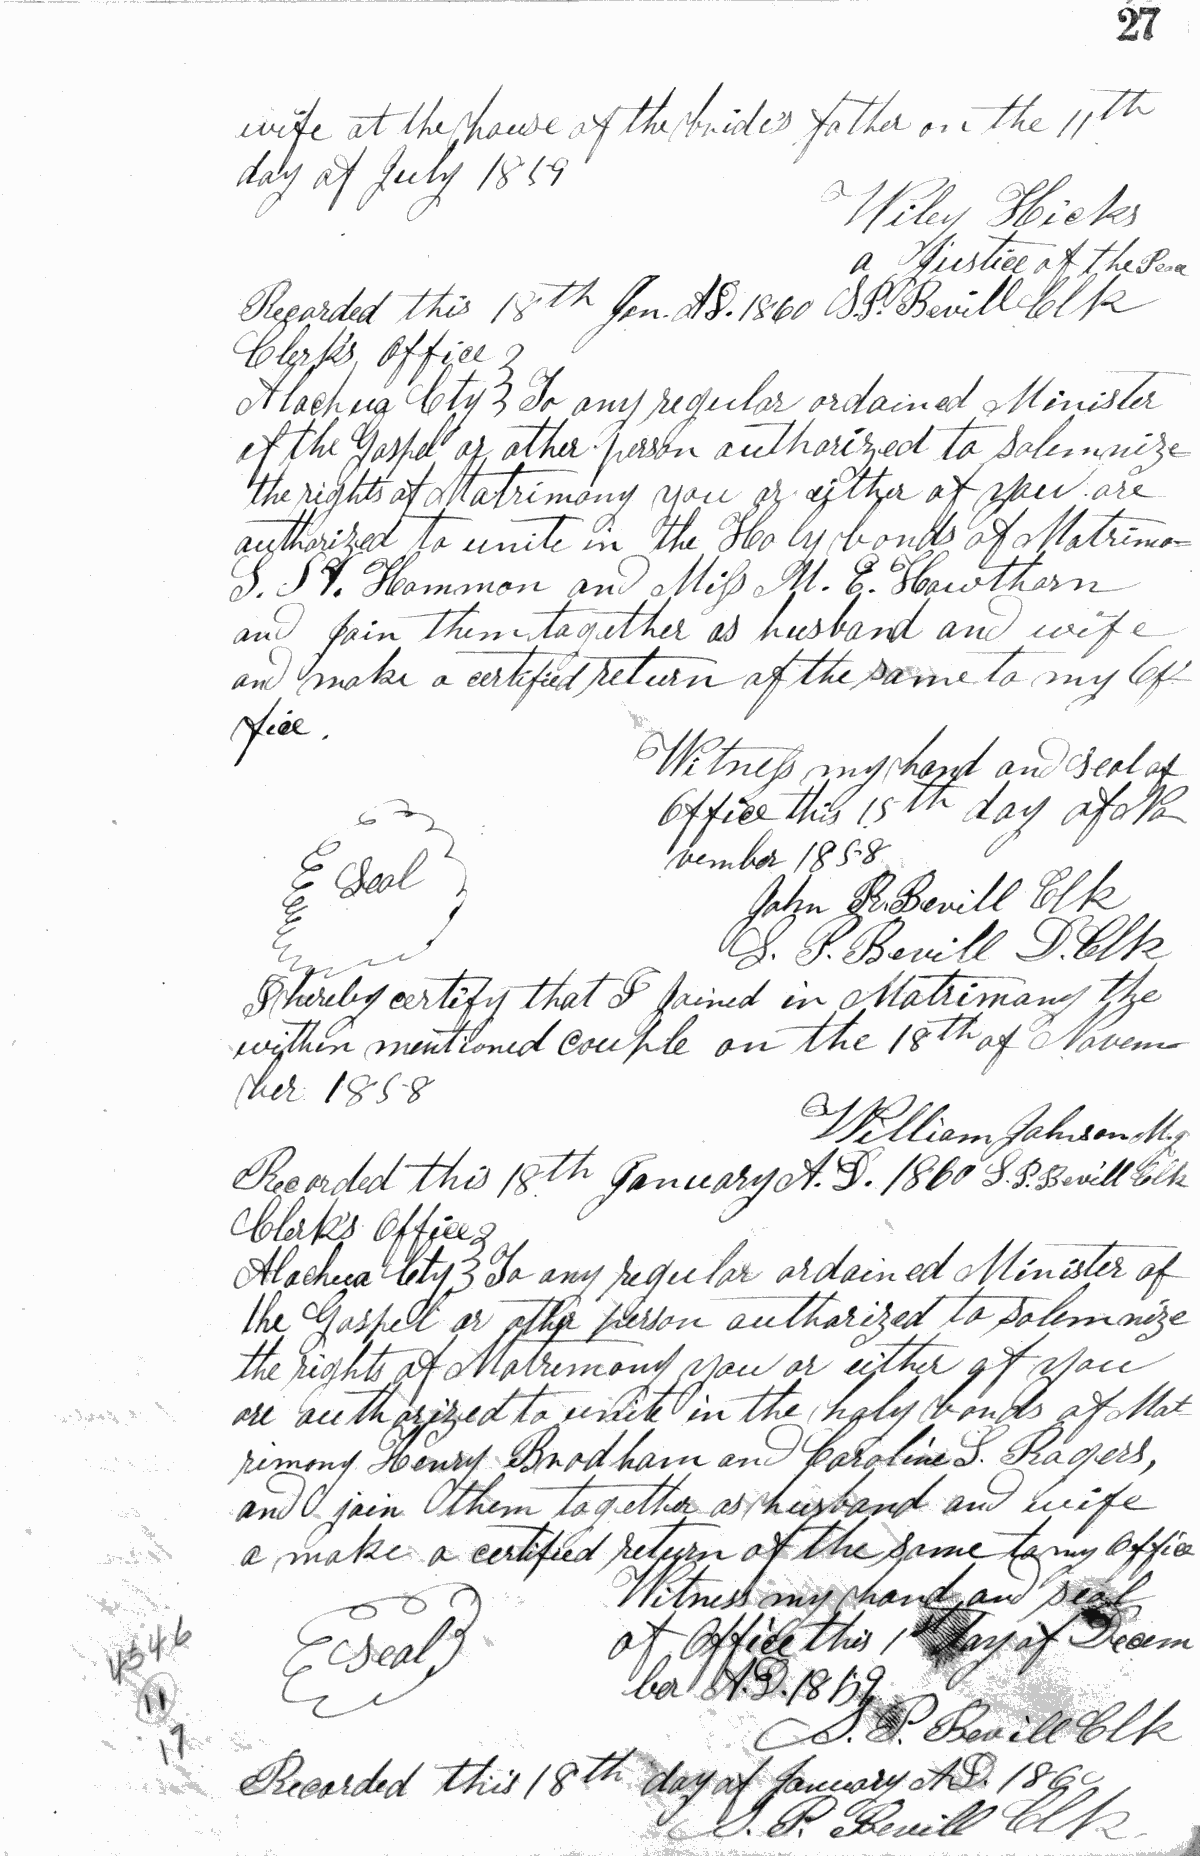 27
wife at the house of the brides father on the 11th
day of July 1859
Wiley Hicks
a Justice of the Peace
Recorded this 18th Jan. A.D. 1860 S.P. Bevill Clk
Clerk's Office }
Alachua Cty } To any regular ordained Minister
of the Gospel or other person authorized to solemnize
the rights of Matrimony you or either of you are
authorized to unite in the Holy bonds of Matrimo=
S. Hammon and Miss M. E. Hawthorn
and join them together as husband and wife
and make a certified return of the same to my Of-
fice.
Witness my hand and seal of
Office this 15th day of No
vember 1858
Seal
John R. Bevill Clk
S. P. Bevill D. Clk
I hereby certify that I joined in Matrimony the
within mentioned couple on the 18th of Novem-
ber 1858
William Johnson M.g
Recorded this 18th January A. D. 1860 S. P. Bevill Clk
Clerk's Office }
Alachua Cty } To any regular ordained Minister of
the Gospel or other person authorized to solemnize
the rights of Matrimony you or either of you
are authorized to unite in the holy bonds of Mat
rimony Henry Brodham and Caroline S. Rogers,
and join them together as husband and wife
a make a certified return of the same to my Office
Witness my hand and seal
of Office this 1st day of Decem
ber A.D. 1859
Seal
4546
11
17
S. P. Bevill Clk
Recorded this 18th day of January A.D. 1860
S. P. Bevill Clk.